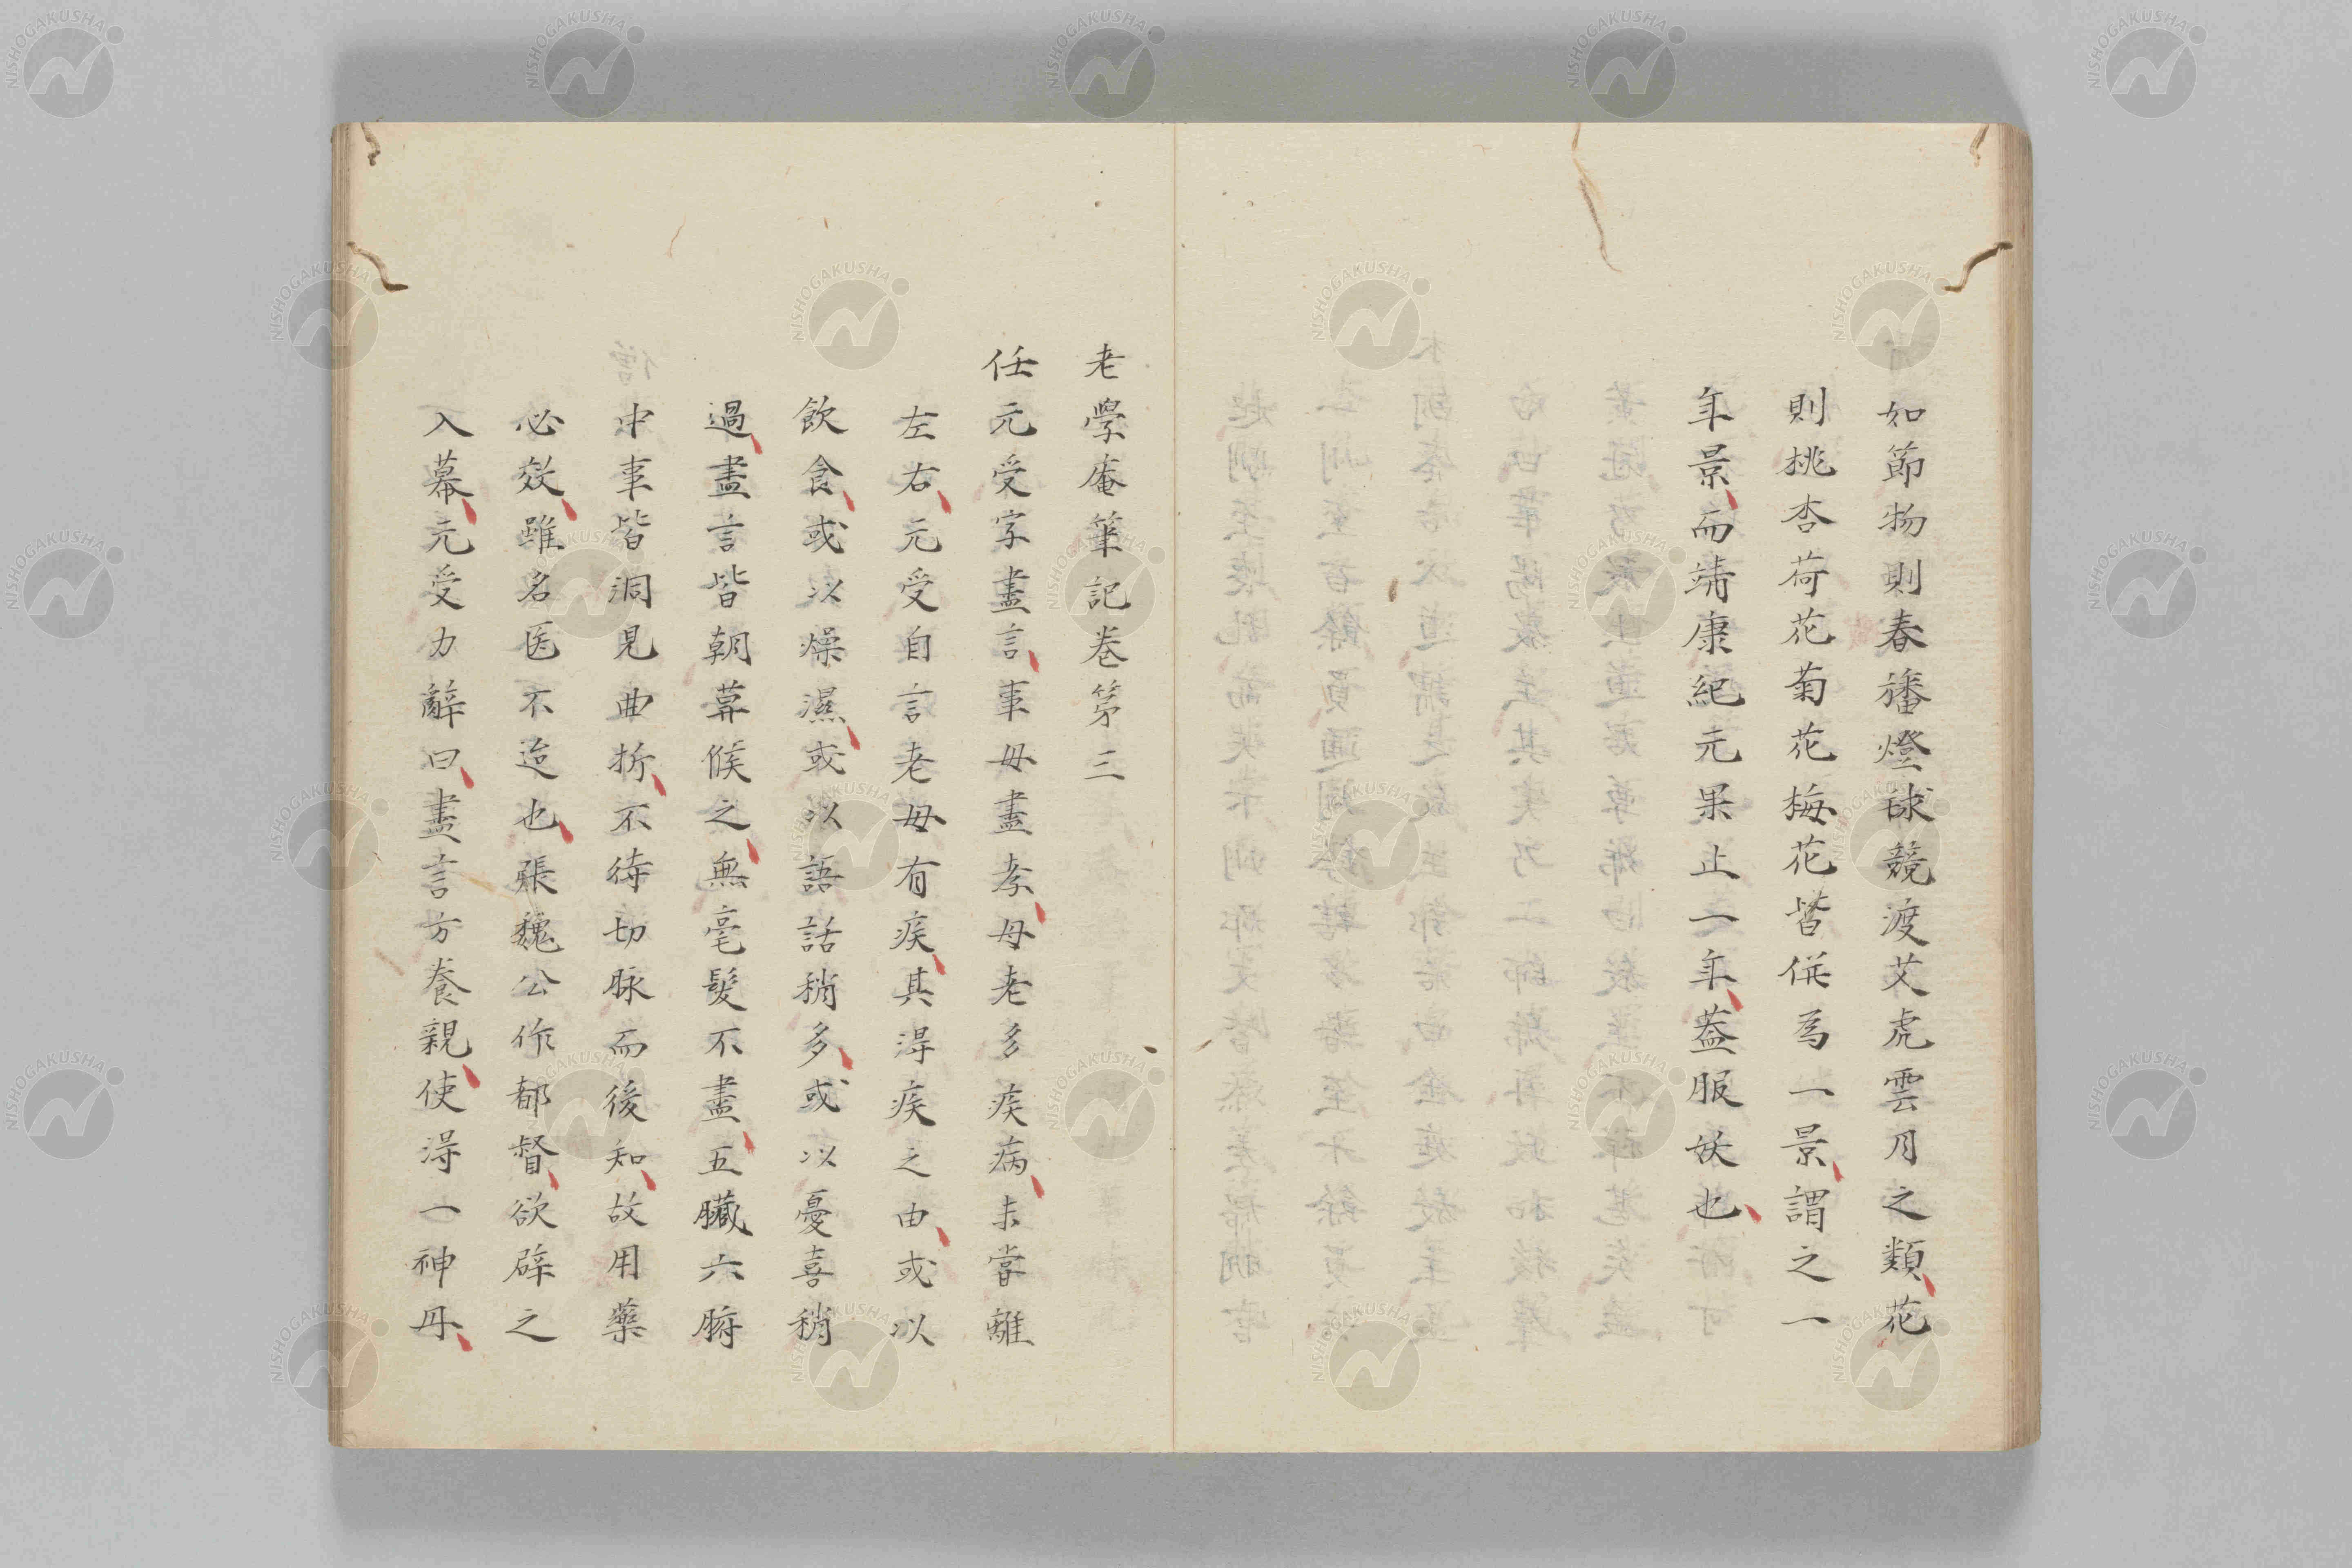 如節物則春旛燈毬競渡艾虎雲月之類花
則桃杏荷花菊花梅花皆併為一景謂之一
年景而靖康紀元果止一年蓋服妖也
老學庵筆記卷第三
任元受字盡言事母盡孝母老多疾病未嘗離
左右元受自言老母有疾其得疾之由或以
飲食或以燥濕或以語話稍多或以憂喜稍
過盡言皆朝暮候之無毫髮不盡五臟六腑
中事皆洞見曲折不待切脉而後知故用藥
必效雖名医不迨也張魏公作都督欲辟之
入幕元受力辭曰盡言方養親使得一神丹
NISHOGAKUSHA